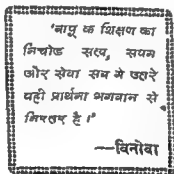 'बापू के शिक्षण का
निचोड सत्य, सयम
और सेवा सब मे उतरे
यही प्रार्थना भगवान से
निरन्तर है।'
—विनोबा